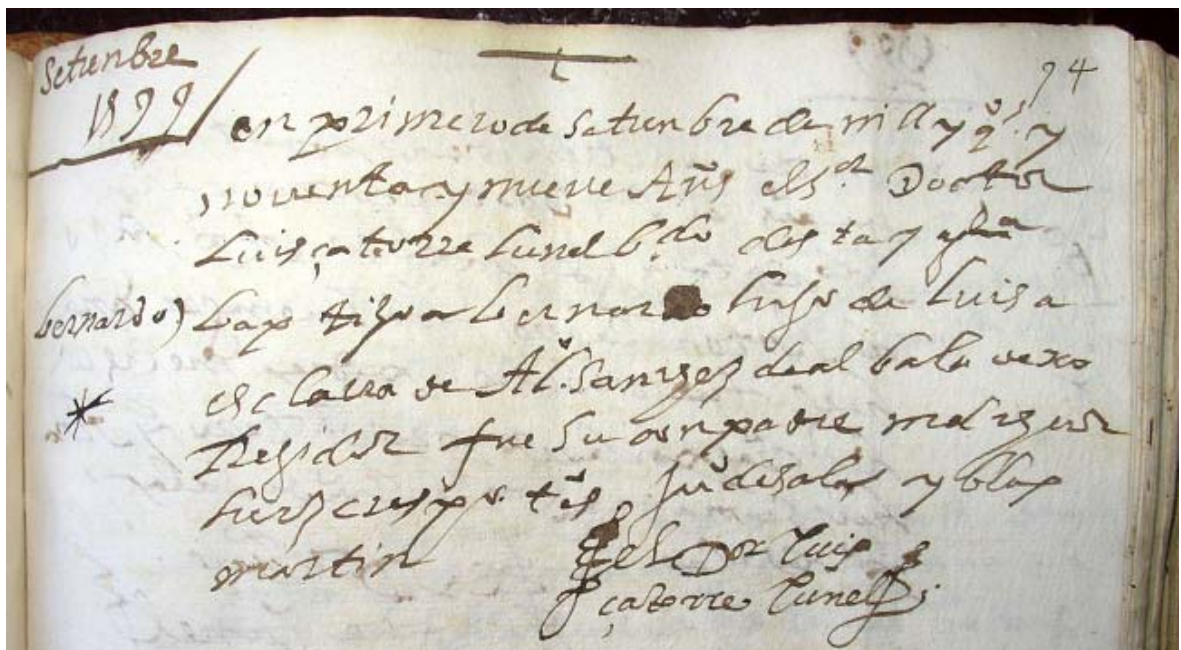 Setienbre
1599
94
en primero de setienbre de mill y qos. y
noventa y nueve Años el sr. Doctor
Luis çatorre Lunel bdo desta yglia
bernardo) baptizo a bernardo hijo de Luisa
esclava de Al. Sanchez de albalo vexo
Regidor fue su conpadre melchior
crespo tos Ju de salas y blas
martin
el Dor Luis
çatorre Lunel